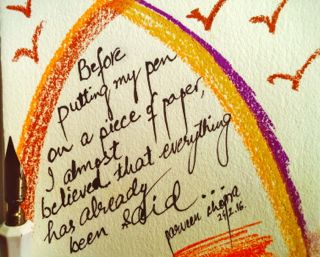 Before
putting my pen
on a piece of paper,
I almost
believed that everything
has already
been said...
parveen chopra
29.2.16.